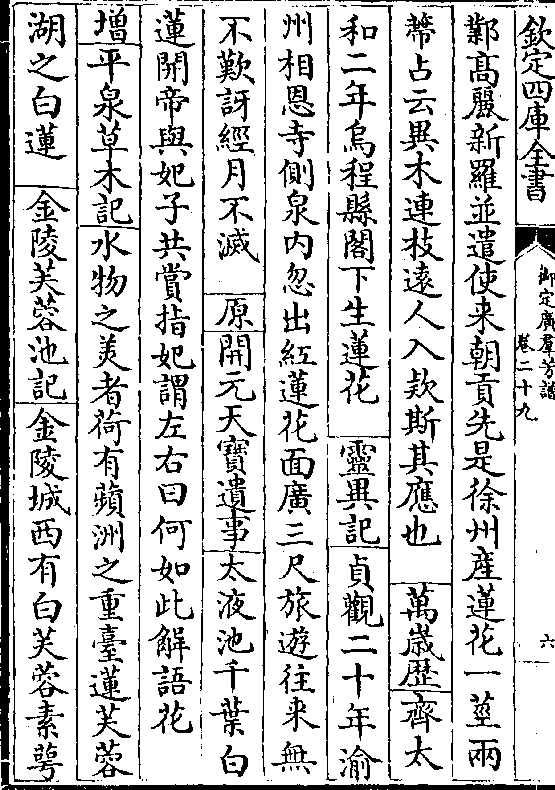 欽定四庫全書
御定廣羣芳譜
卷二十九
六
鄴髙麗新羅並遣使来朝貢先是徐州産蓮花一莖兩
蔕占云異木連枝逺人入欵斯其應也 萬歳歴齊太
和二年烏程縣閣下生蓮花 靈異記貞觀二十年渝
州相思寺側泉内忽出紅蓮花面廣三尺旅遊往来無
不歎訝經月不滅 原開元天寳遺事太液池千葉白
蓮開帝與妃子共賞指妃謂左右曰何如此解語花
增平泉草木記水物之美者荷有蘋洲之重臺蓮芙蓉
湖之白蓮 金陵芙蓉池記金陵城西有白芙蓉素萼